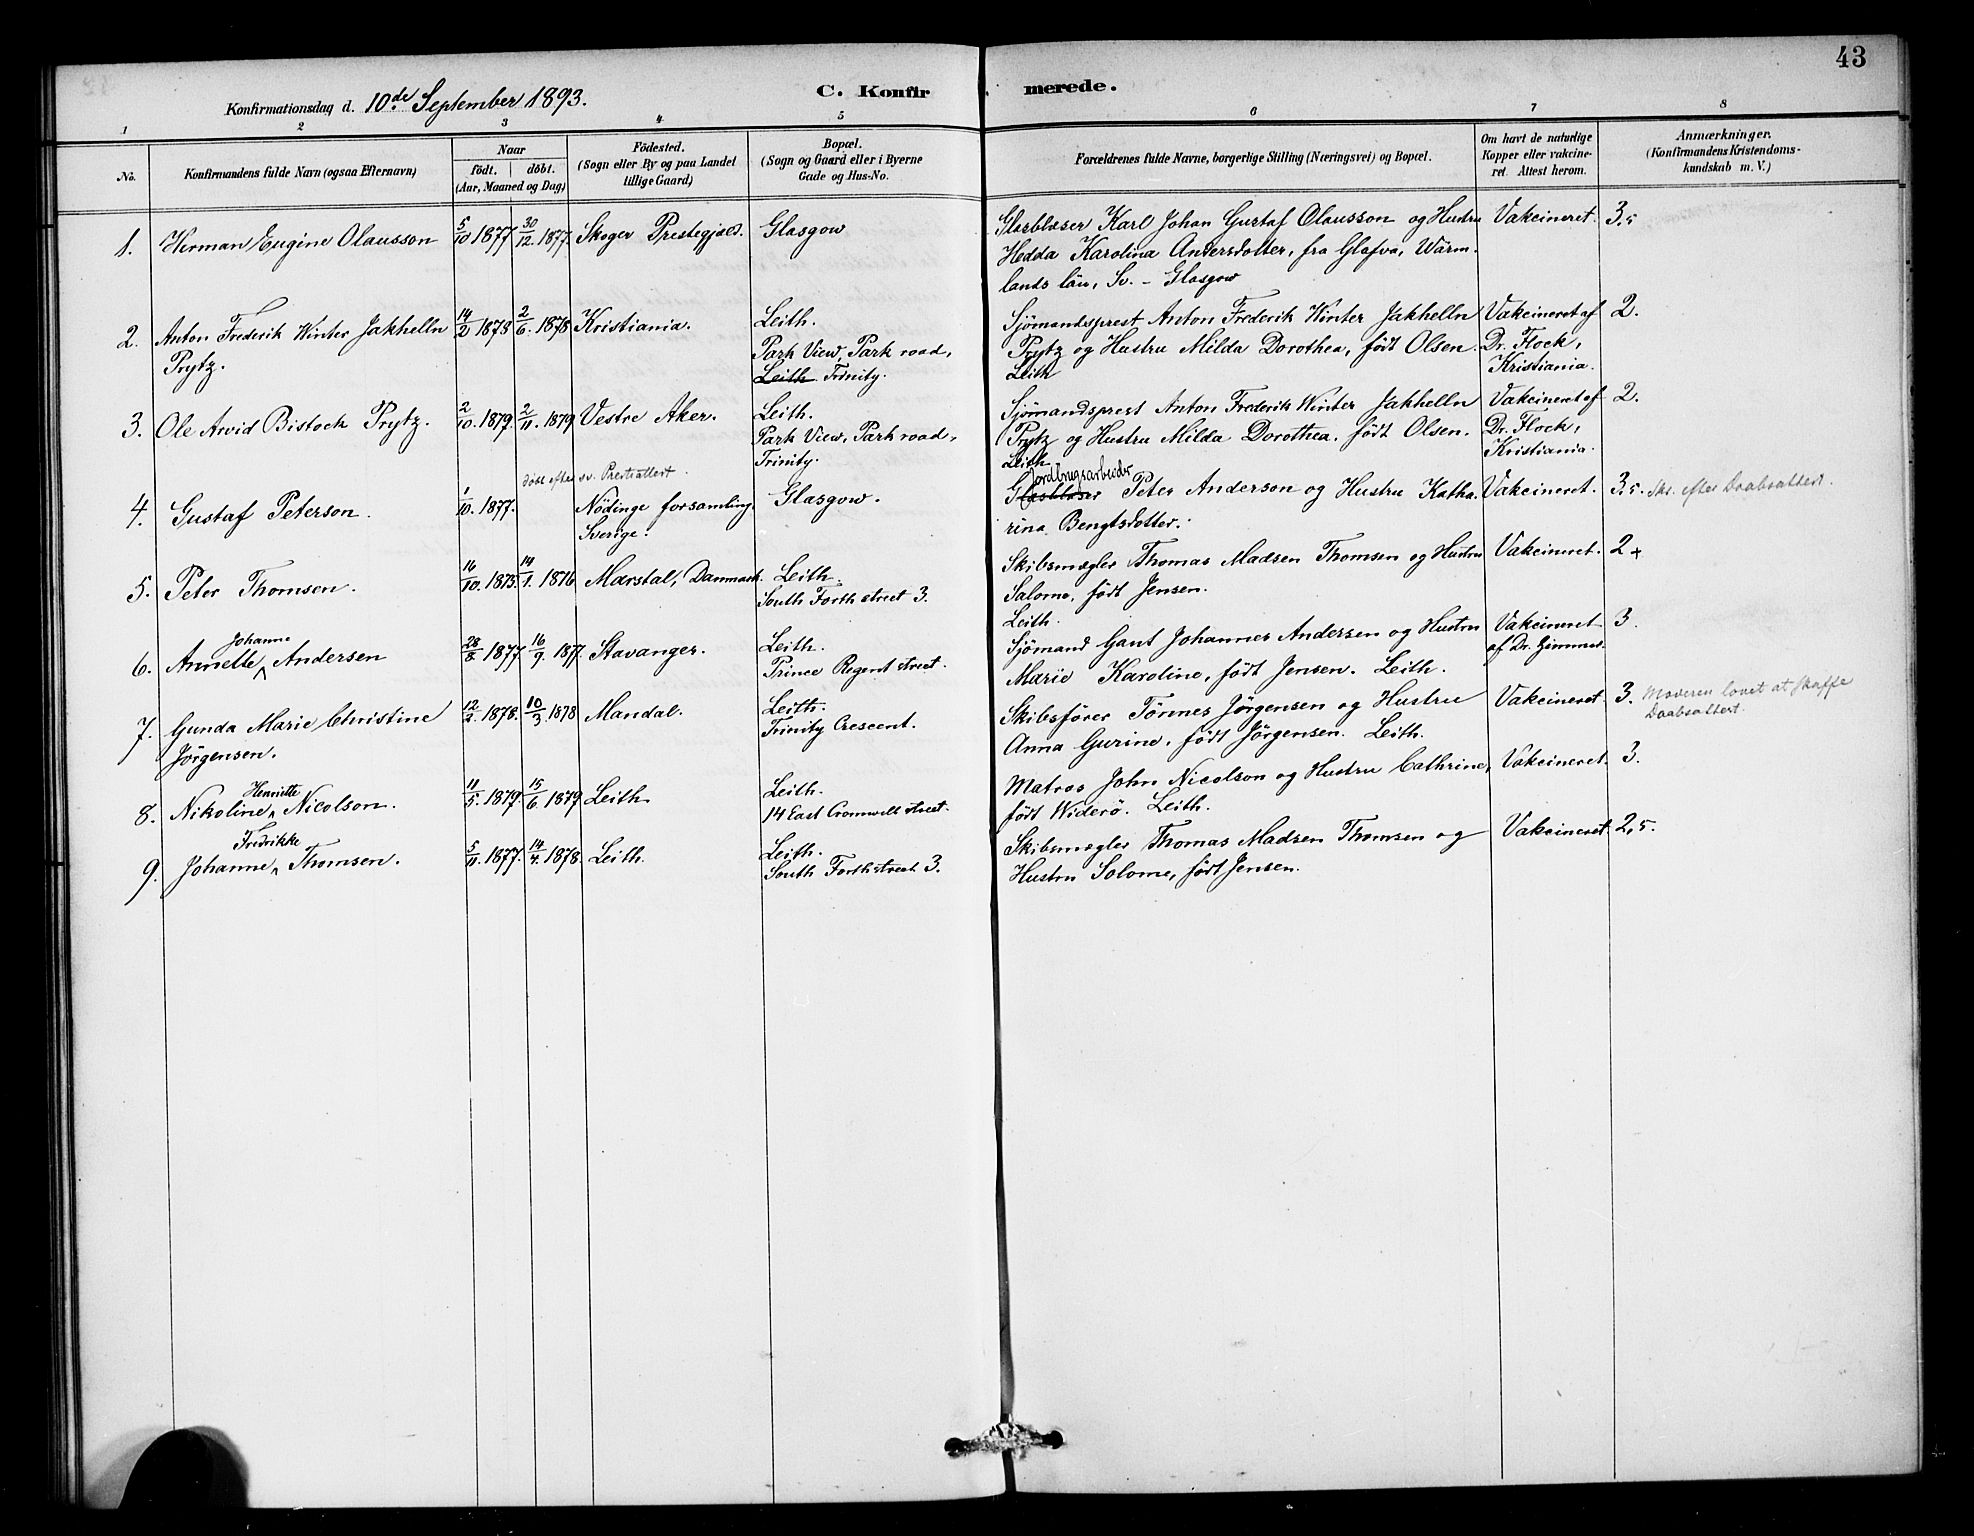 43
Konfirmationsdag d. 10de September 1893.
C. Konfirmerede.
1 2 3 4 5 6 7 8
No.
Konfirmandens fulde Navn (ogsaa Efternavn)
Naar
födt. döbt.
(Aar, Maaned og Dag)
Födested.
(Sogn eller By og paa Landet
tillige Gaard)
Bopæl.
(Sogn og Gaard eller i Byerne
Gade og Hus-No.
Forældrenes fulde Navne, borgerlige Stilling (Næringsvei) og Bopæl.
Om havt de naturlige
Kopper eller vakcine-
ret. Attest herom.
Anmærkninger.
(Konfirmandens Kristendoms-
kundskab m. V.)
1. Herman Eugine Olausson 5/10 1877 30/12. 1877. Skoger Prestegjæld. Glasgow Glasblæser Karl Johan Gustaf Olausson og Hustru Vakcineret. 3,5
Hedda Karolina Andersdotter, fra Glafva, Wärm-
lands län, Sv. - Glasgow
2. Anton Frederik Winter Jakhelln 14/2 1878 2/6. 1878. Kristiania. Leith. Sjömandsprest Anton Frederik Winter Jakhelln Vakcineret af 2.
Prytz. Park View, Park road, Prytz og Hustru Milda Dorothea, födt Olsen. Dr. Flock,
Leith Trinity. Leith Kristiania.
3. Ole Arvid Bistock Prytz. 2/10. 1879. 2/11. 1879 Vestre Aker. Leith. Sjömandsprest Anton Frederik Winter Jakhelln Vakcineret af 2.
Park View, Park road, Prytz og Hustru Milda Dorothea, födt Olsen. Dr. Flock,
Trinity. Leith Kristiania.
döbt efter sv. Prestattest. Jordbrugsarbeider
4. Gustaf Peterson. 1/10. 1877. Nödinge forsamling, Glasgow. Glasblæser Peter Anderson og Hustru Katha- Vakcineret. 3,5. Skr. efter Daabsattest.
Sverige. rina Bengtsdotter.
5. Peter Thomsen. 16/10. 1875. 14/1. 1876 Marstal, Danmark. Leith. Skibsmægler Thomas Madsen Thomsen og Hustru Vakcineret. 2+
South Forth street 3. Salome, födt Jensen.
Leith.
Johanne
6. Annette Andersen 28/8. 1877. 16/9. 1877. Stavanger. Leith. Sjömand Gant Johannes Andersen og Hustru Vakcineret 3.
Prince Regent street. Marie Karoline, födt Jensen. Leith. af Dr.
7. Gunda Marie Christine 12/2. 1878. 10/3. 1878 Mandal. Leith. Skibsförer Tönnes Jörgensen og Hustru Vakcineret 3. Moderen lovet at skaffe
Jörgensen. Trinity Crescent. Anna Gurine, födt Jörgensen. Leith. Daabsattest.
Henriette
8. Nikoline Nicolson. 11/5. 1879. 15/6. 1879 Leith Leith. Matros John Nicolson og Hustru Cathrine, Vakcineret. 3.
14 East Cromwell street. födt Widerö. Leith.
Fredrikke
9. Johanne Thomsen. 5/11. 1877. 14/4. 1878. Leith. Leith. Skibsmægler Thomas Madsen Thomsen og Vakcineret 2,5.
South Forth street 3. Hustru Solome, födt Jensen.